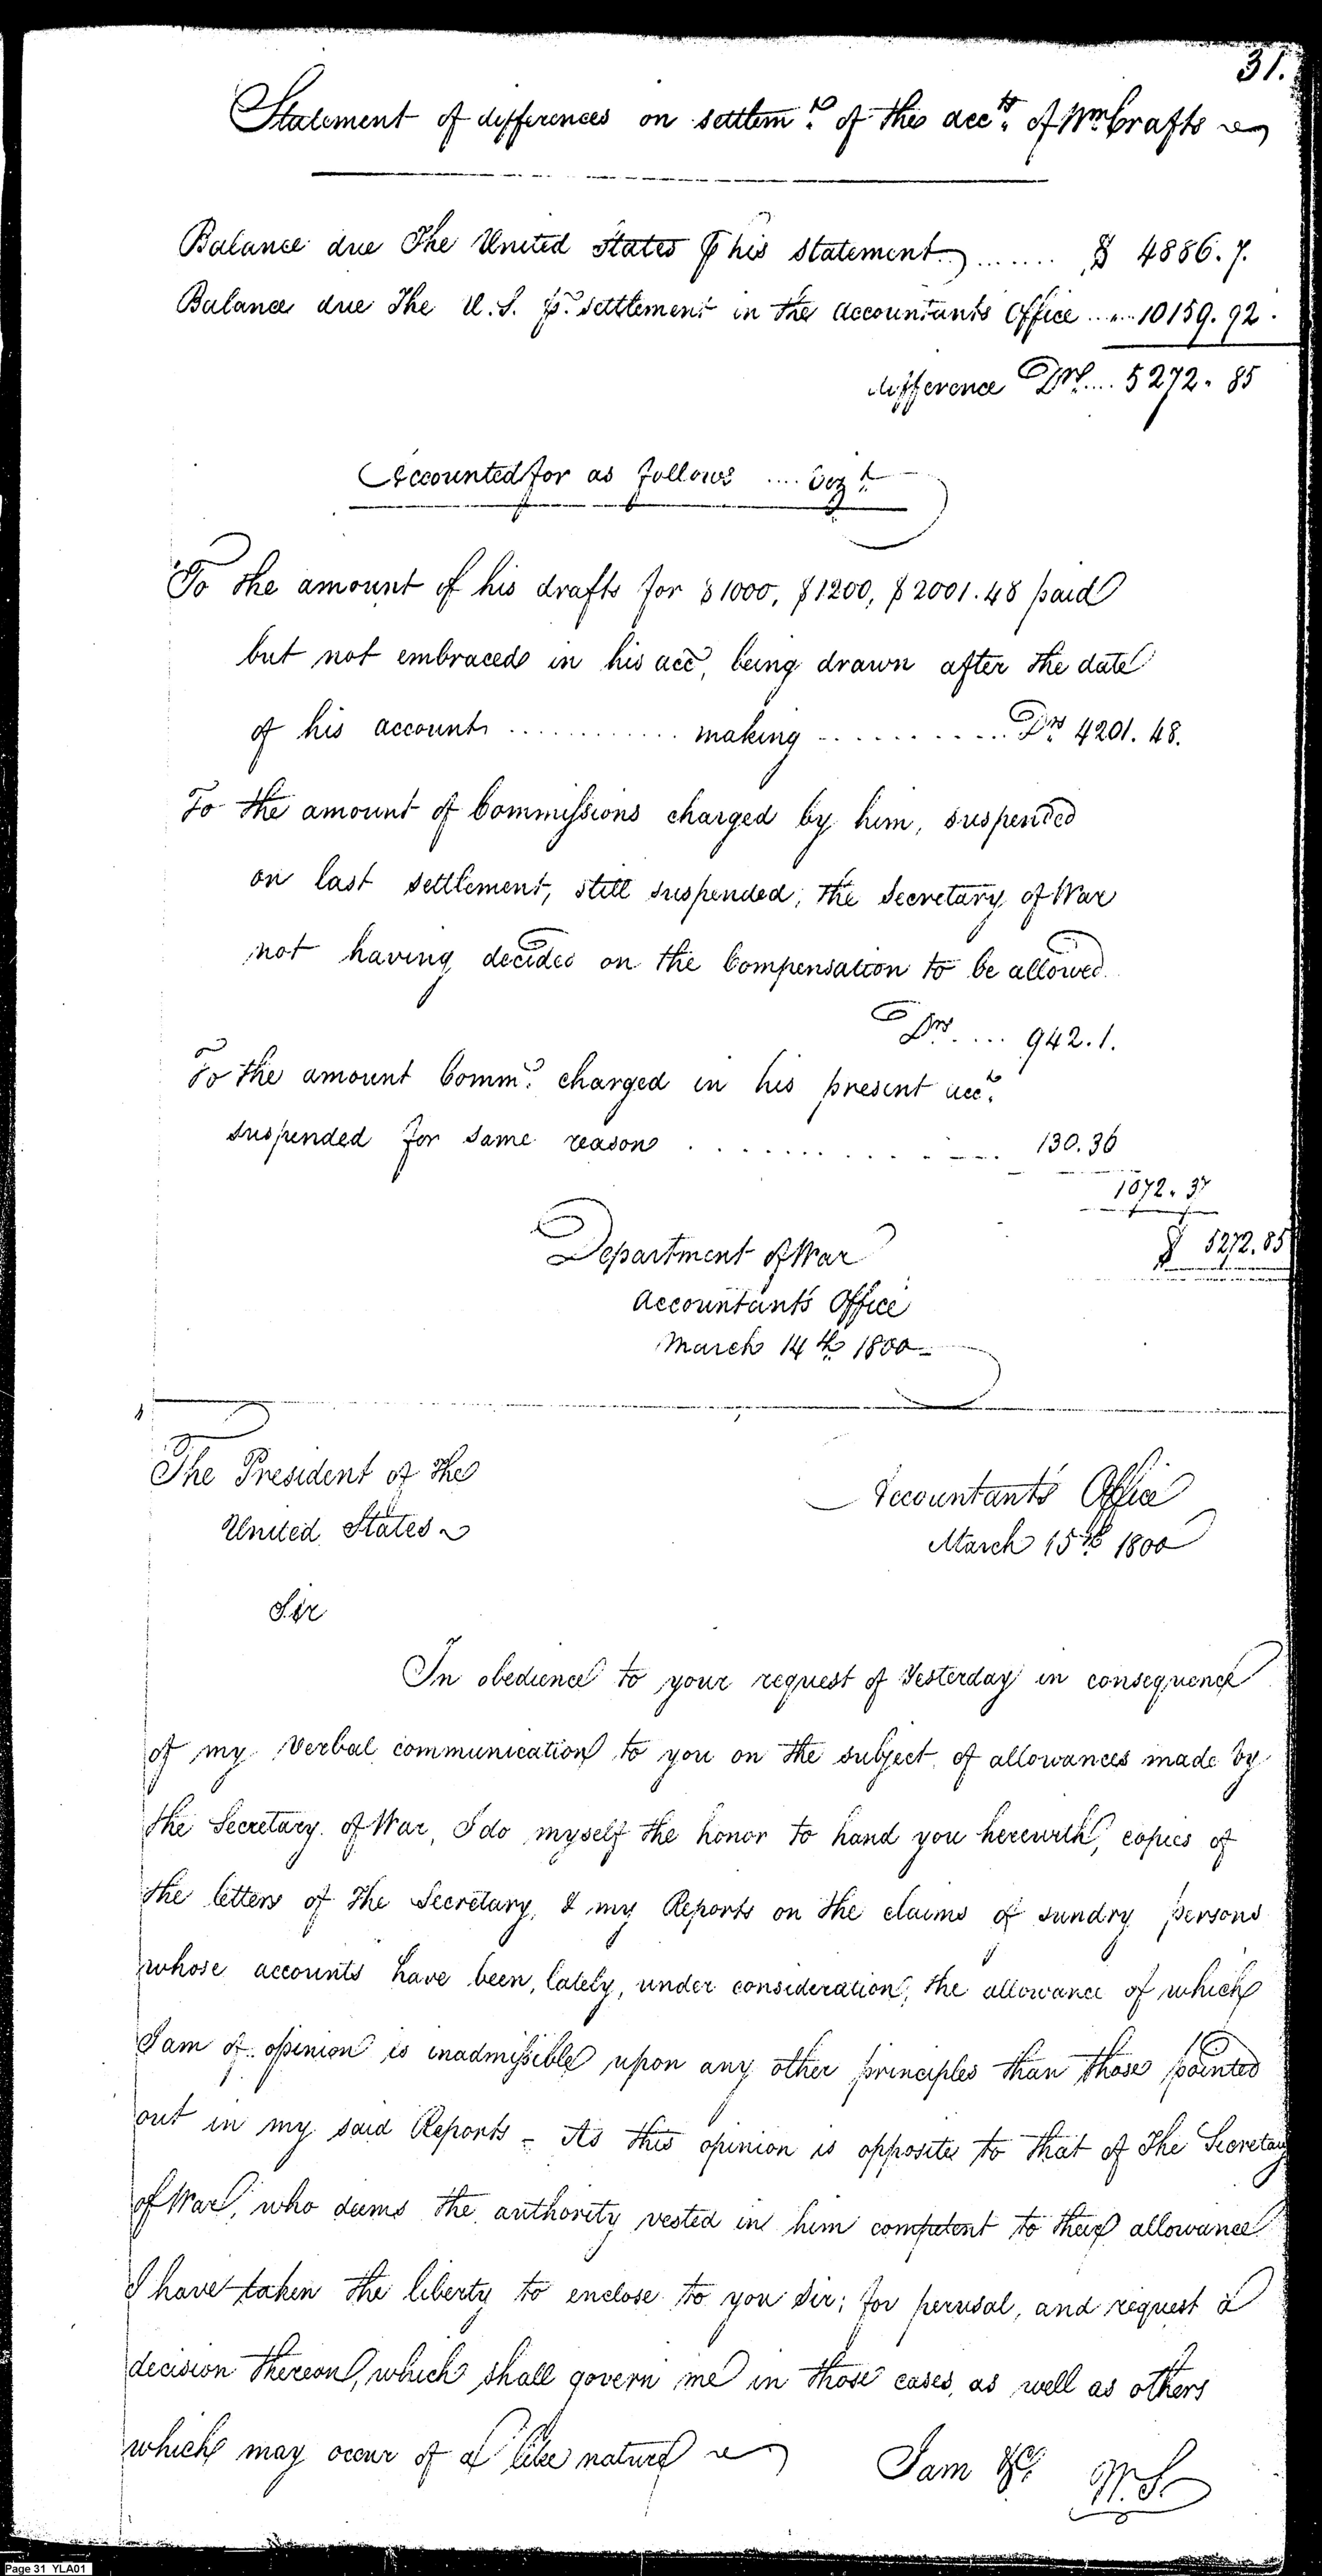 31.
Statement of differences on settlemt. of the accts. of Wm Crafts
Balance due The United States P his statement ....... $ 4886.7.
Balance due The U.S. pr. settlement in the Accountants Office ..... 10159.92.
difference Drs .... 5272.85
Accounted for as follows .... Vizt.
To the amount of his drafts for $1000, $1200, $2001.48 paid
but not embraced in his acct, being drawn after the date
of his account ............ making ............ Drs 4201.48.
To the amount of Commissions charged by him, suspended
on last settlement, still suspended, the Secretary of War
not having decided on the Compensation to be allowed
Drs .... 942.1.
To the amount Comms. charged in his present acct.
suspended for same reason ............ 130.36
1072.37
$ 5272.85
Department of War
Accountants Office
March 14th 1800
The President of the
United States
Accountant's Office
March 15th 1800
Sir
In obedience to your request of Yesterday in consequence
of my verbal communication to you on the subject of allowances made by
the Secretary of War, I do myself the honor to hand you herewith, copies of
the letters of the Secretary, & my Reports on the claims of sundry persons
whose accounts have been, lately, under consideration, the allowance of which
I am of opinion is inadmissible upon any other principles than those pointed
out in my said Reports - As this opinion is opposite to that of The Secretary
of War, who deems the authority vested in him competent to their allowance
I have taken the liberty to enclose to you Sir; for perusal, and request a
decision thereon, which shall govern me in those cases, as well as others
which may occur of a like nature
I am &c. W.S.
Page 31 YLA01